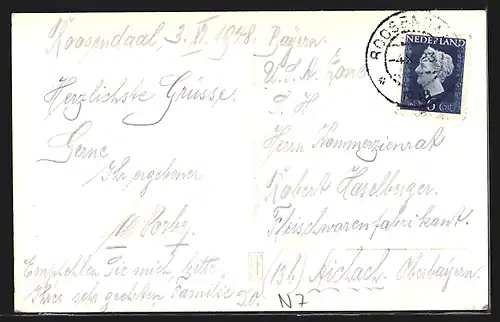 Roosendaal, 3. XI. 1948.
Herzlichste Grüsse.
Gerne
Ihr ergebener
Empfehlen Sie mich, bitte,
Ihrer sehr geehrten Familie
Bayern.
U.S.A. Zone
Herrn Kommerzienrat
Robert Haselberger.
Fleischwarenfabrikant.
(13b) Aichach. Oberbayern.
N7
NEDERLAND
ROOSENDAAL